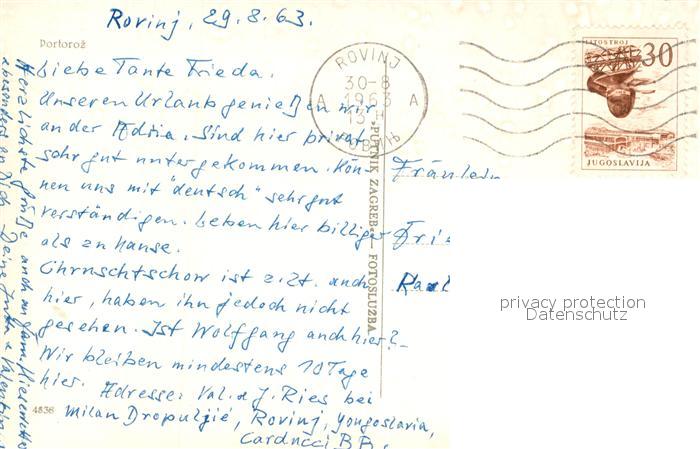 Rovinj, 29.8.63.
Portorož
Liebe Tante Frieda.
Unseren Urlaub genießen wir
an der Adria. Sind hier privat
sehr gut untergekommen. Kön-
nen uns mit "deutsch" sehr gut
verständigen. Leben hier billiger
als zu Hause.
Chruschtschow ist z. Zt. auch
hier, haben ihn jedoch nicht
gesehen. Ist Wolfgang auch hier?
Wir bleiben mindestens 10 Tage
hier. Adresse: Val. & J. Ries bei
Milan Dropuljić, Rovinj, Yougoslavia,
Carducci BB.
4836
Herzlichste Grüße auch an Fam.
besonders an Dich Deine
"PUTNIK ZAGREB" — FOTOSLUŽBA
ROVINJ
30-8
1963
13 H
A A
LITOSTROJ
30
JUGOSLAVIJA
Fräulein
privacy protection
Datenschutz